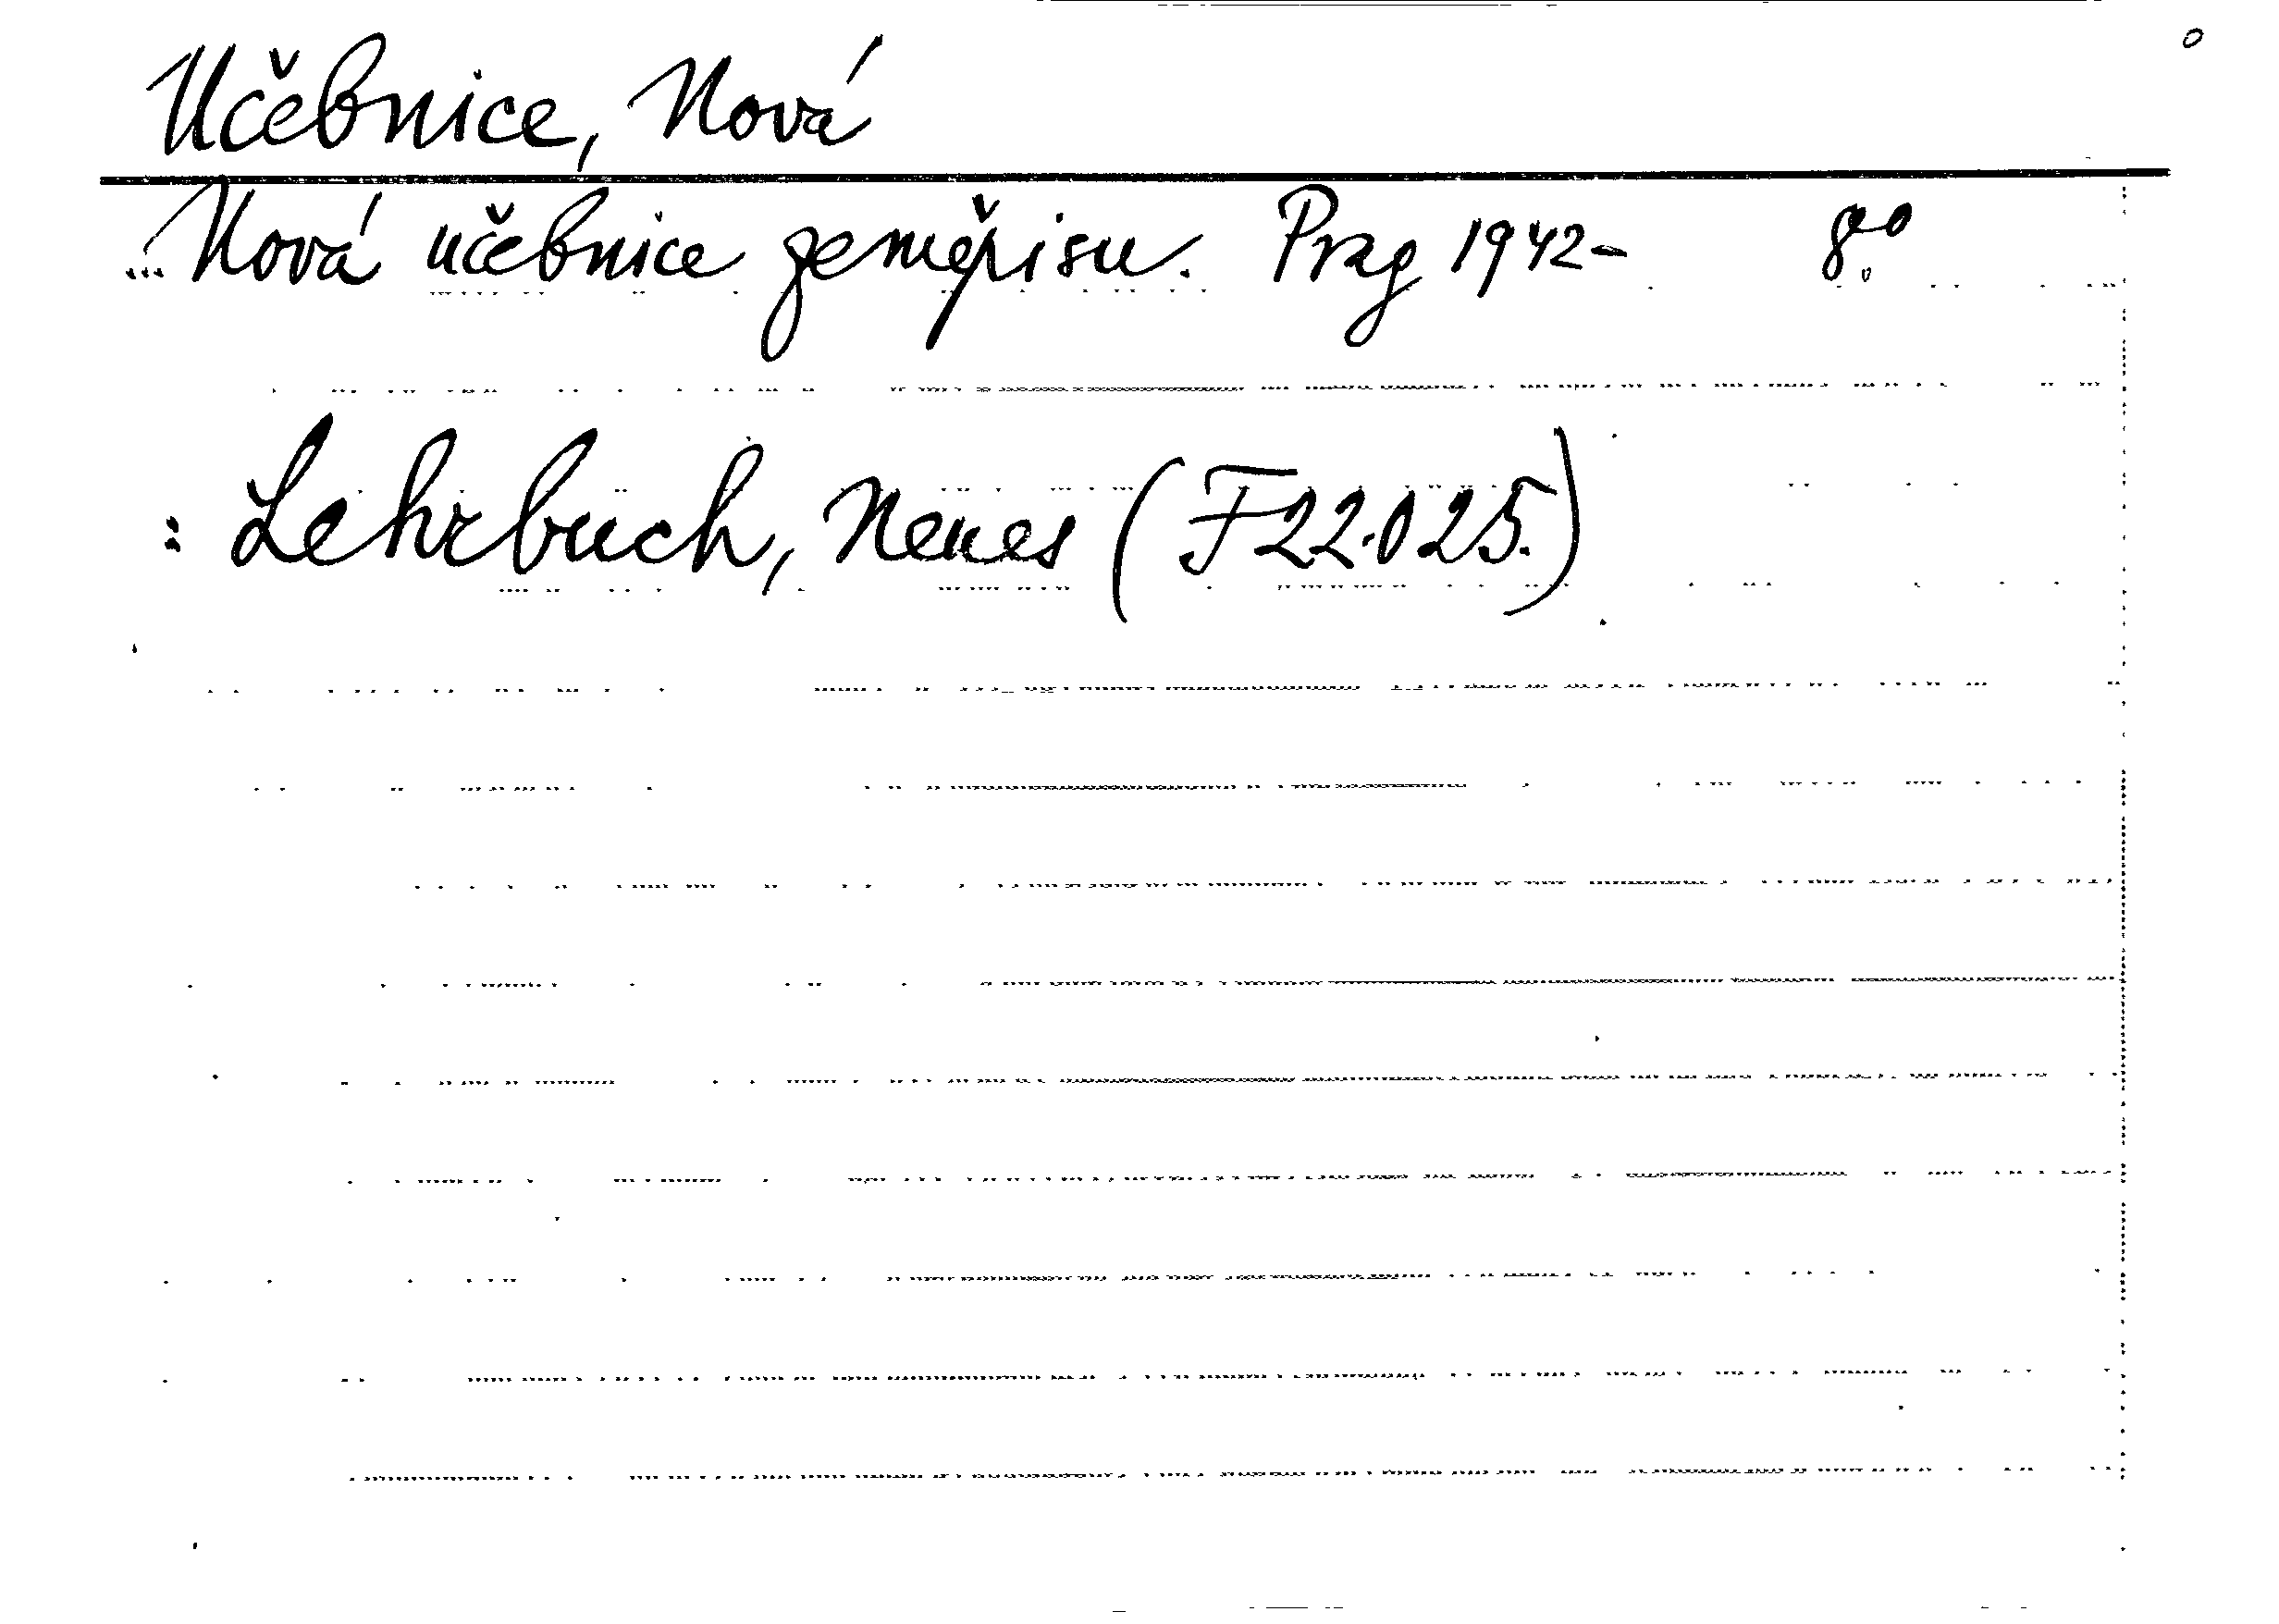 Učebnice, Nová
Nová učebnice zeměpisu. Prag 1942- 8.º
: Lehrbuch, Neues (F22.025.)